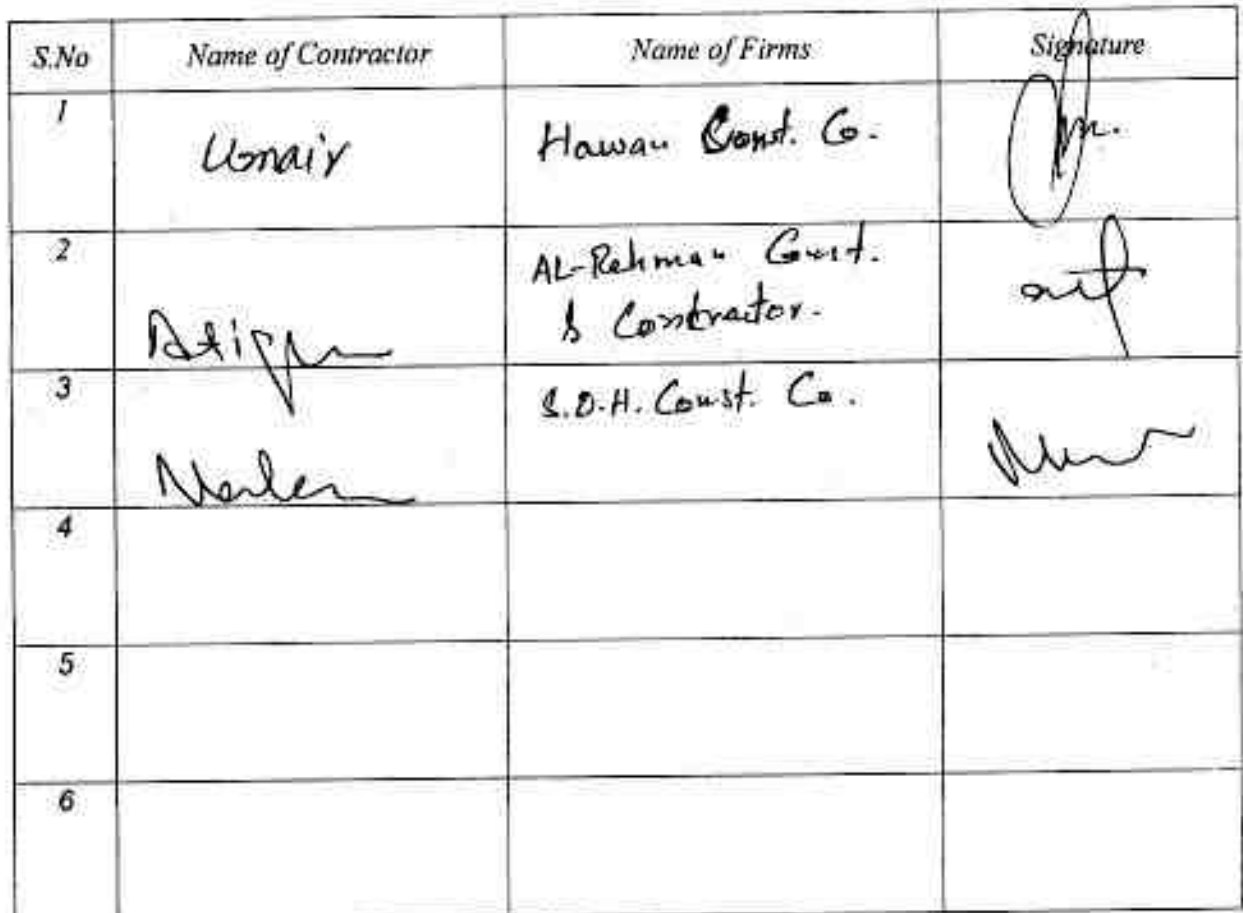 S.No Name of Contractor Name of Firms Signature
1 Umair Hawan Const. Co.
2 AL-Rehman Const.
& Contractor.
3 S.D.H. Const. Co.
4
5
6